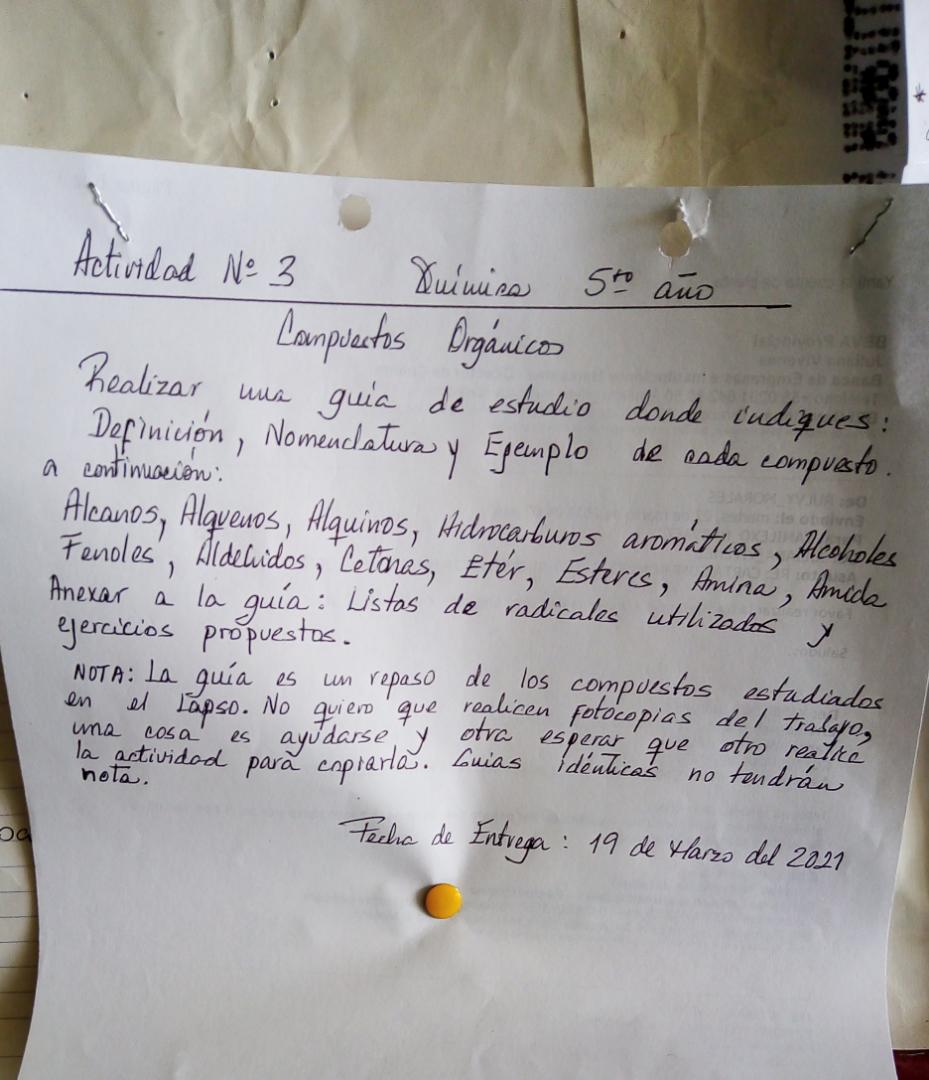 Actividad Nº 3 Química 5to año
Compuestos Orgánicos
Realizar una guía de estudio donde indiques:
Definición, Nomenclatura y Ejemplo de cada compuesto.
a continuación:
Alcanos, Alquenos, Alquinos, Hidrocarburos aromáticos, Alcoholes
Fenoles, Aldehidos, Cetonas, Etér, Esteres, Amina, Amida
Anexar a la guía: Listas de radicales utilizados y
ejercicios propuestos.
NOTA: La guía es un repaso de los compuestos estudiados
en el Lapso. No quiero que realicen fotocopias del trabajo,
una cosa es ayudarse y otra esperar que otro realice
la actividad para copiarla. Guias idénticas no tendrán
nota.
Fecha de Entrega: 19 de Marzo del 2021